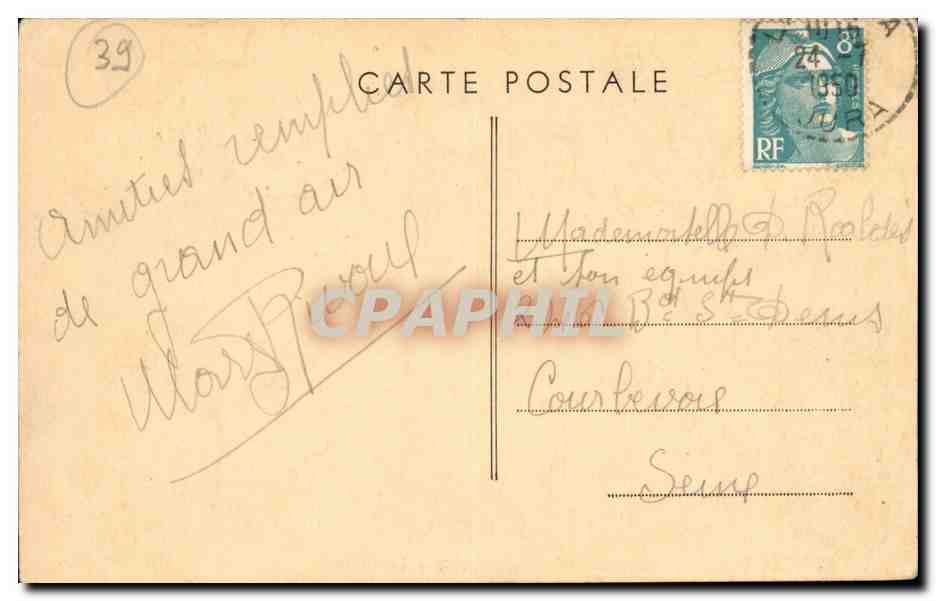 39
CARTE POSTALE
8F
24
1950
JURA
RF
Amitiés remplies
de grand air
Mademoiselle D
et son equipe
Bd St Denis
Courbevoie
Seine
CPAPHIL